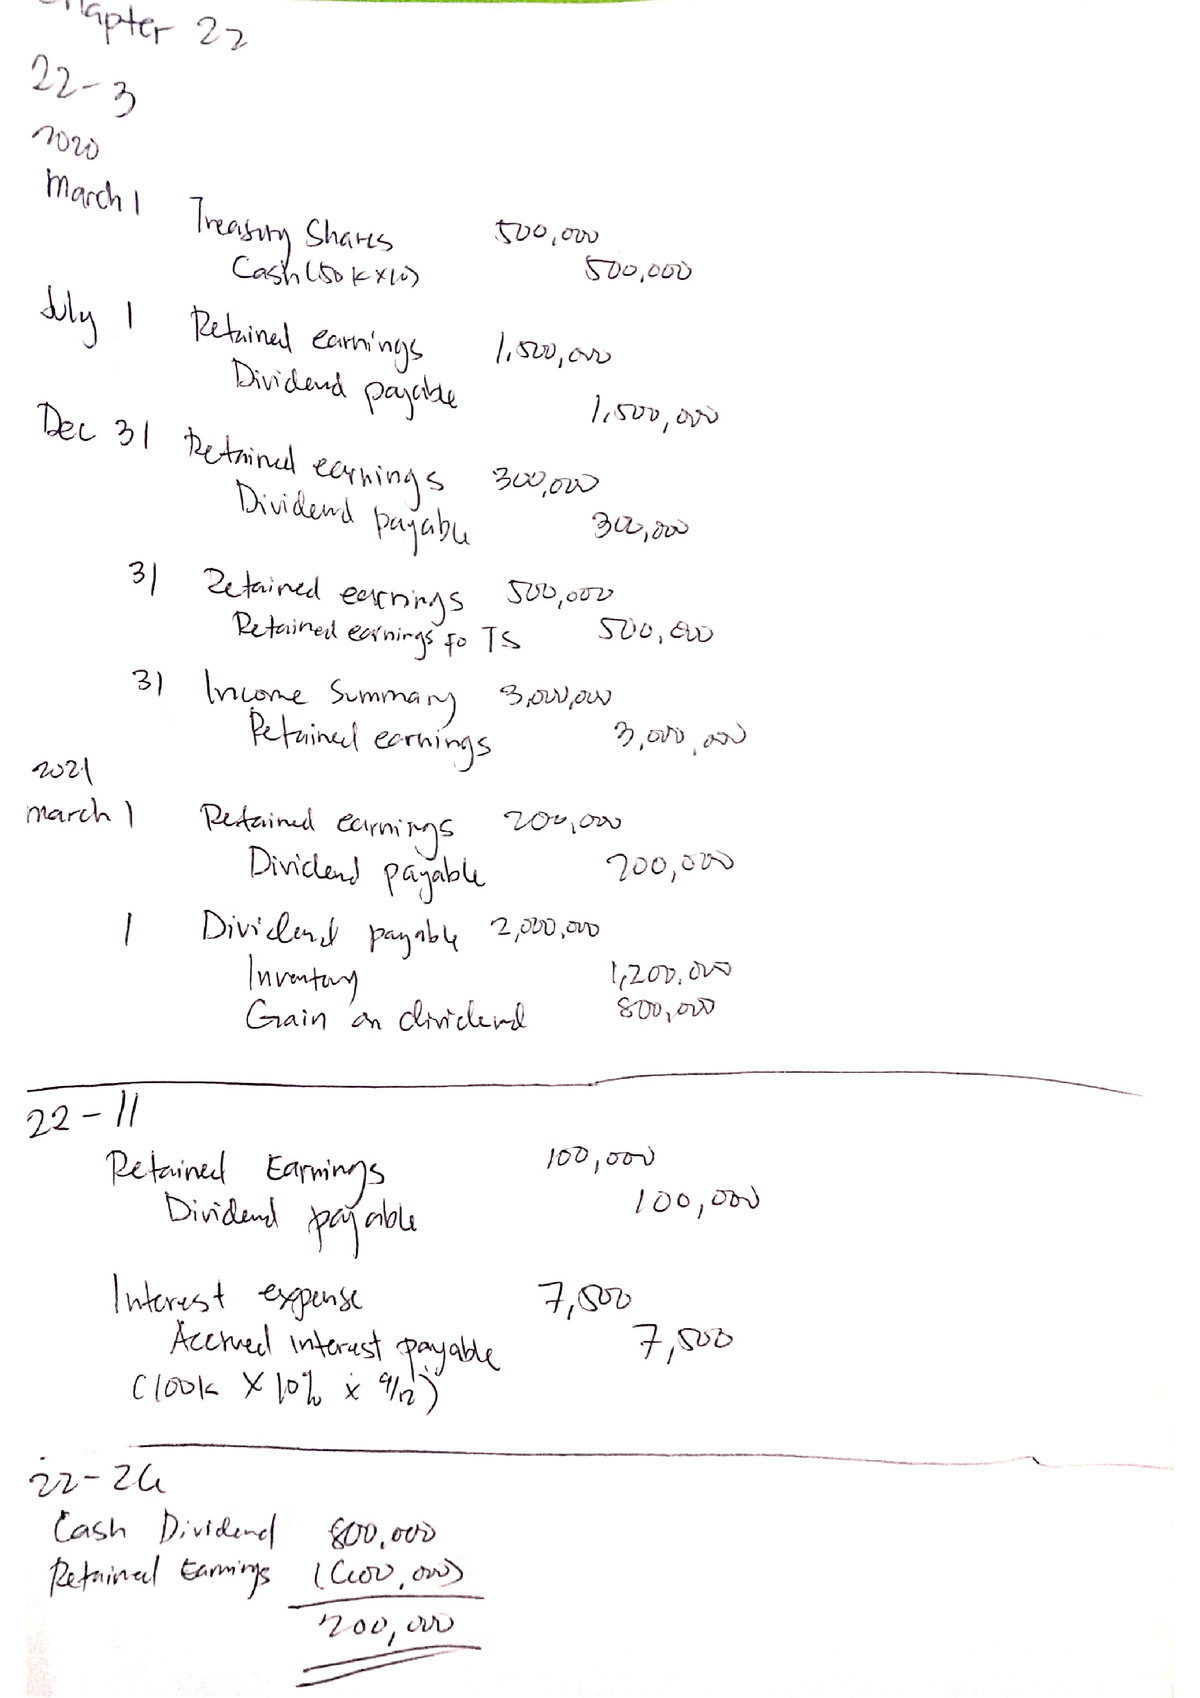 Chapter 22
22-3
2020
March 1 Treasury Shares 500,000
Cash (50k x 10) 500,000
July 1 Retained earnings 1,500,000
Dividend payable 1,500,000
Dec 31 Retained earnings 300,000
Dividend payable 300,000
31 Retained earnings 500,000
Retained earnings fo TS 500,000
31 Income Summary 3,000,000
Retained earnings 3,000,000
2021
march 1 Retained earnings 200,000
Dividend payable 200,000
1 Dividend payable 2,000,000
Inventory 1,200,000
Gain on dividend 800,000
22-11
Retained Earnings 100,000
Dividend payable 100,000
Interest expense 7,500
Accrued interest payable 7,500
(100k x 10% x 9/12)
22-26
Cash Dividend 800,000
Retained Earnings (600,000)
200,000